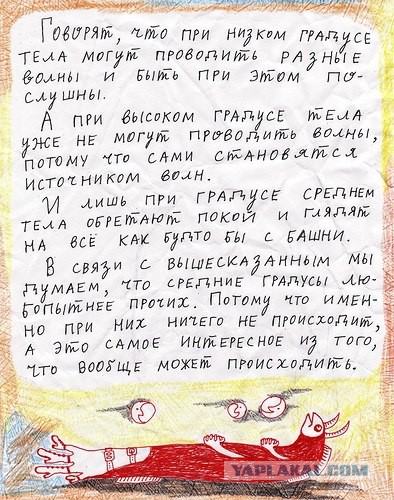 Говорят, что при низком градусе
тела могут проводить разные
волны и быть при этом по-
слушны.
А при высоком градусе тела
уже не могут проводить волны,
потому что сами становятся
источником волн.
И лишь при градусе среднем
тела обретают покой и глядят
на всё как будто бы с башни.
В связи с вышесказанным мы
думаем, что средние градусы лю-
бопытнее прочих. Потому что имен-
но при них ничего не происходит,
а это самое интересное из того,
что вообще может происходить.
YAPLAKAL.COM